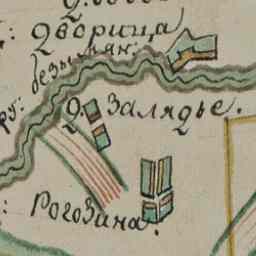 Дворица
безымян:
Д. Залядье.
Рогозина.